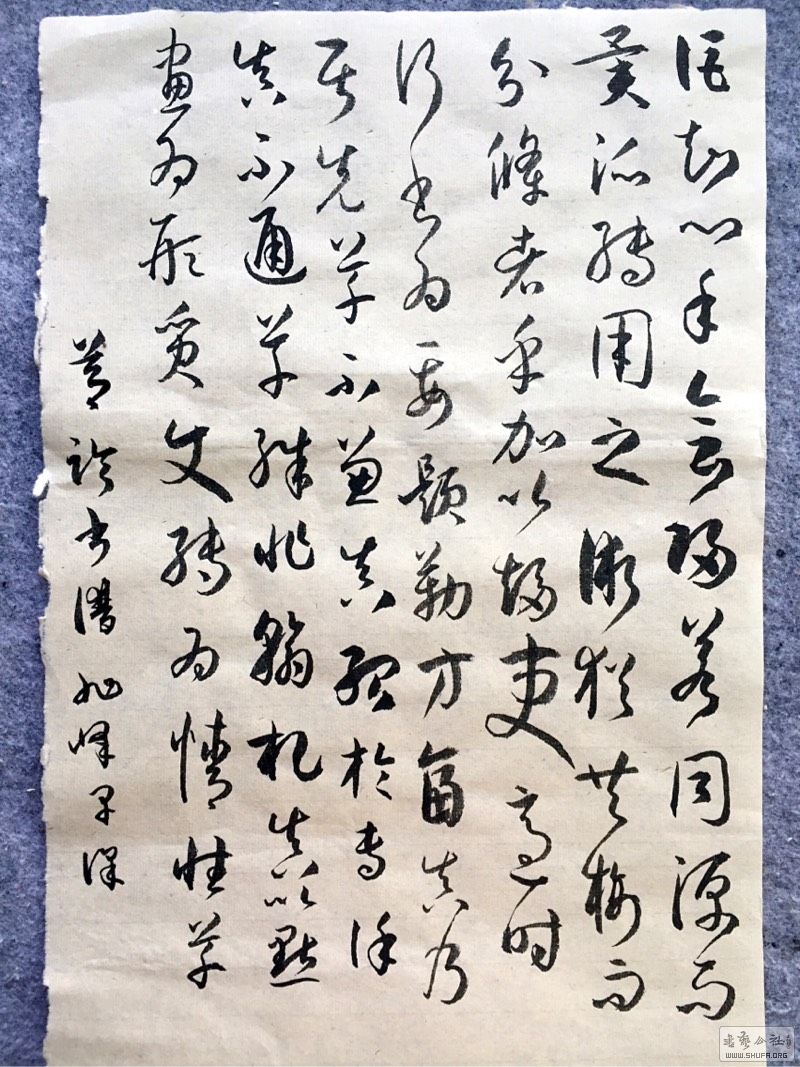 詎知心手會歸若同源而
異派轉用之術猶共樹而
分條者乎加以趨變適時
行書為要題勒方畐真乃
居先草不兼真殆於專謹
真不通草殊非翰札真以點
畫為形質使轉為情性草
節臨書譜旭峰早課
書藝公社
WWW.SHUFA.ORG